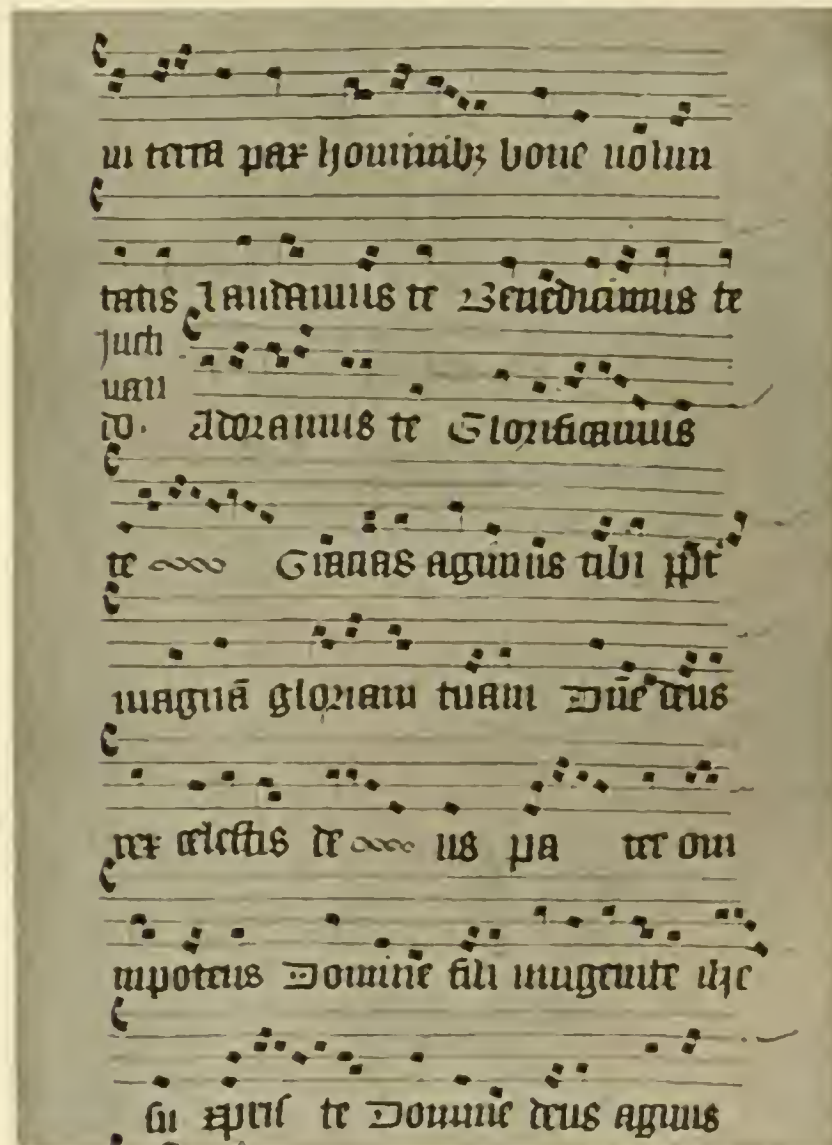 in terra pax hominibꝫ bone uolun
tatis Laudamus te Benedicimus te
Adoramus te Glorificamus
te Gracias agimus tibi ꝓpt̄
magnā gloriam tuam Dn̄e deus
rex celestis de us pa ter om
nipotens Domine fili unigenite ihe
su xp̄istē Domine deus agnus